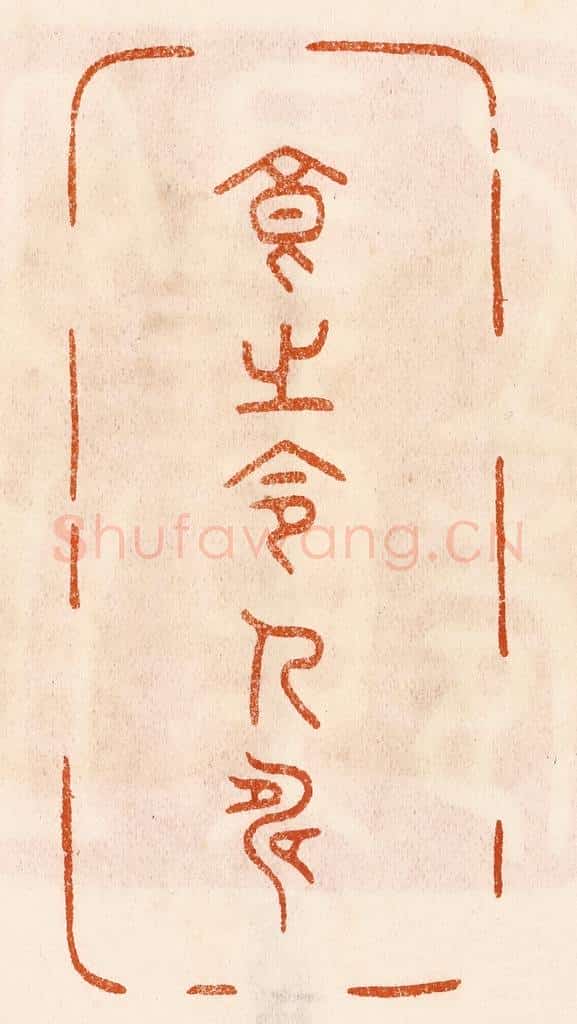 食之令人壽
Shufawang.CN